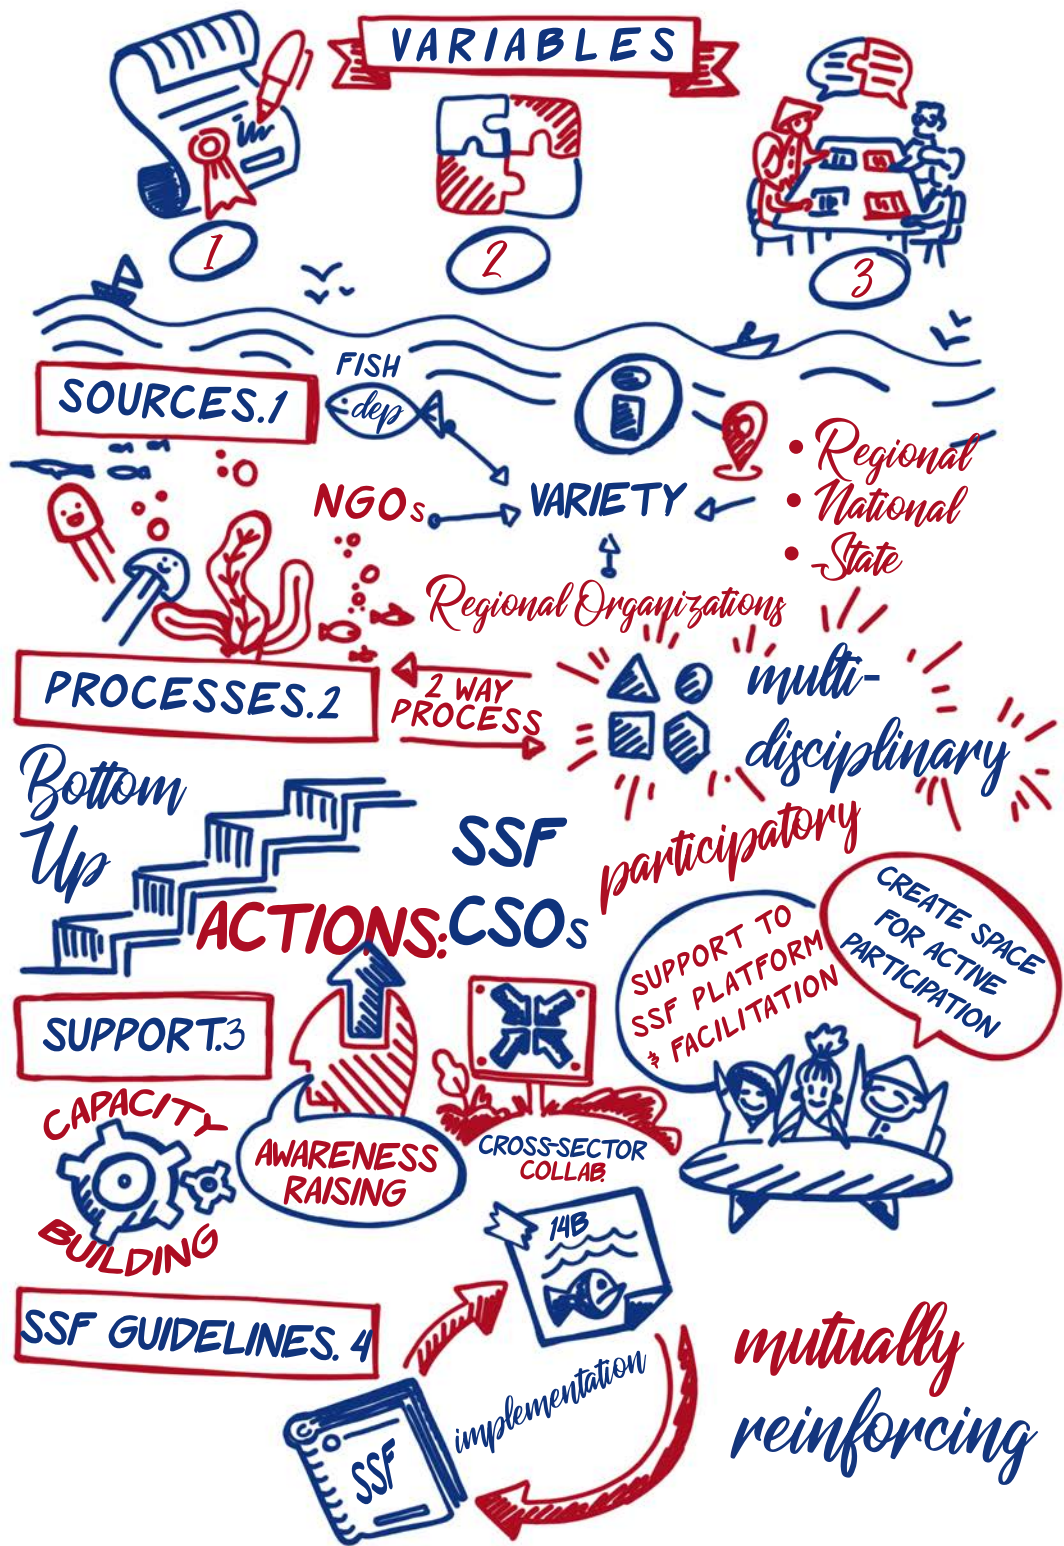 VARIABLES
1
2
3
SOURCES.1
FISH
dep
NGOs
VARIETY
• Regional
• National
• State
Regional Organizations
PROCESSES.2
2 WAY
PROCESS
multi-
disciplinary
Bottom
Up
participatory
SSF
ACTIONS: CSOs
SUPPORT TO
SSF PLATFORM
& FACILITATION
CREATE SPACE
FOR ACTIVE
PARTICIPATION
SUPPORT.3
CAPACITY
BUILDING
AWARENESS
RAISING
CROSS-SECTOR
COLLAB.
14B
SSF GUIDELINES. 4
implementation
SSF
mutually
reinforcing